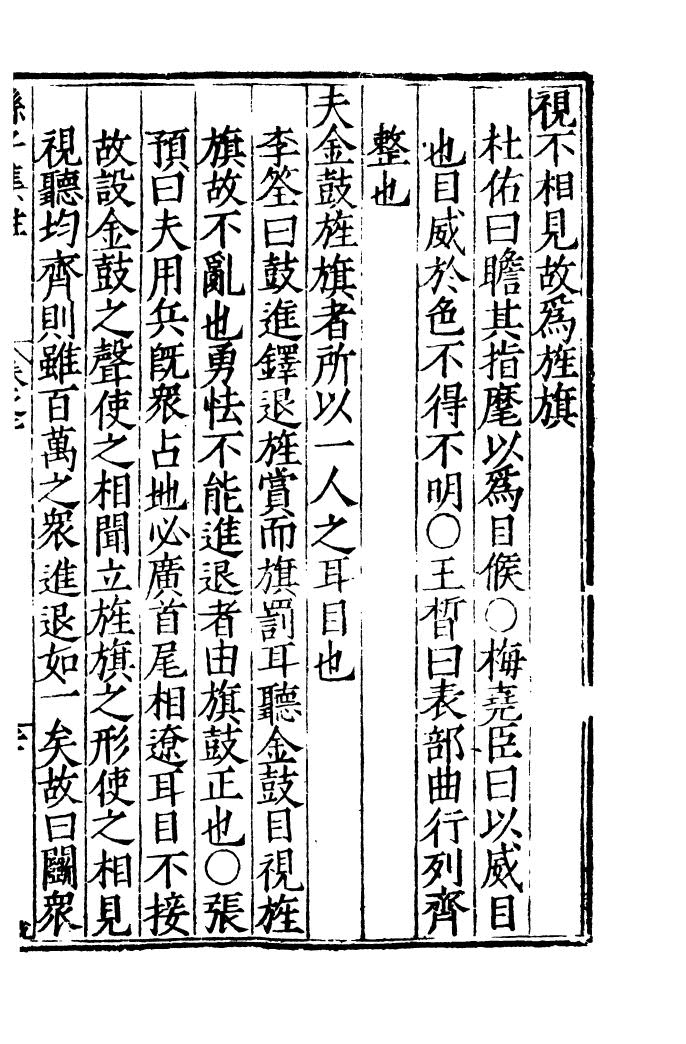 視不相見故爲旌旗
杜佑曰瞻其指麾以爲目候○梅堯臣曰以威目
也目威於色不得不明○王晳曰表部曲行列齊
整也
夫金鼓旌旗者所以一人之耳目也
李筌曰鼓進鐸退旌賞而旗罰耳聽金鼓目視旌
旗故不亂也勇怯不能進退者由旗鼓正也○張
預曰夫用兵旣衆占地必廣首尾相遼耳目不接
故設金鼓之聲使之相聞立旌旗之形使之相見
視聽均齊則雖百萬之衆進退如一矣故曰鬬衆